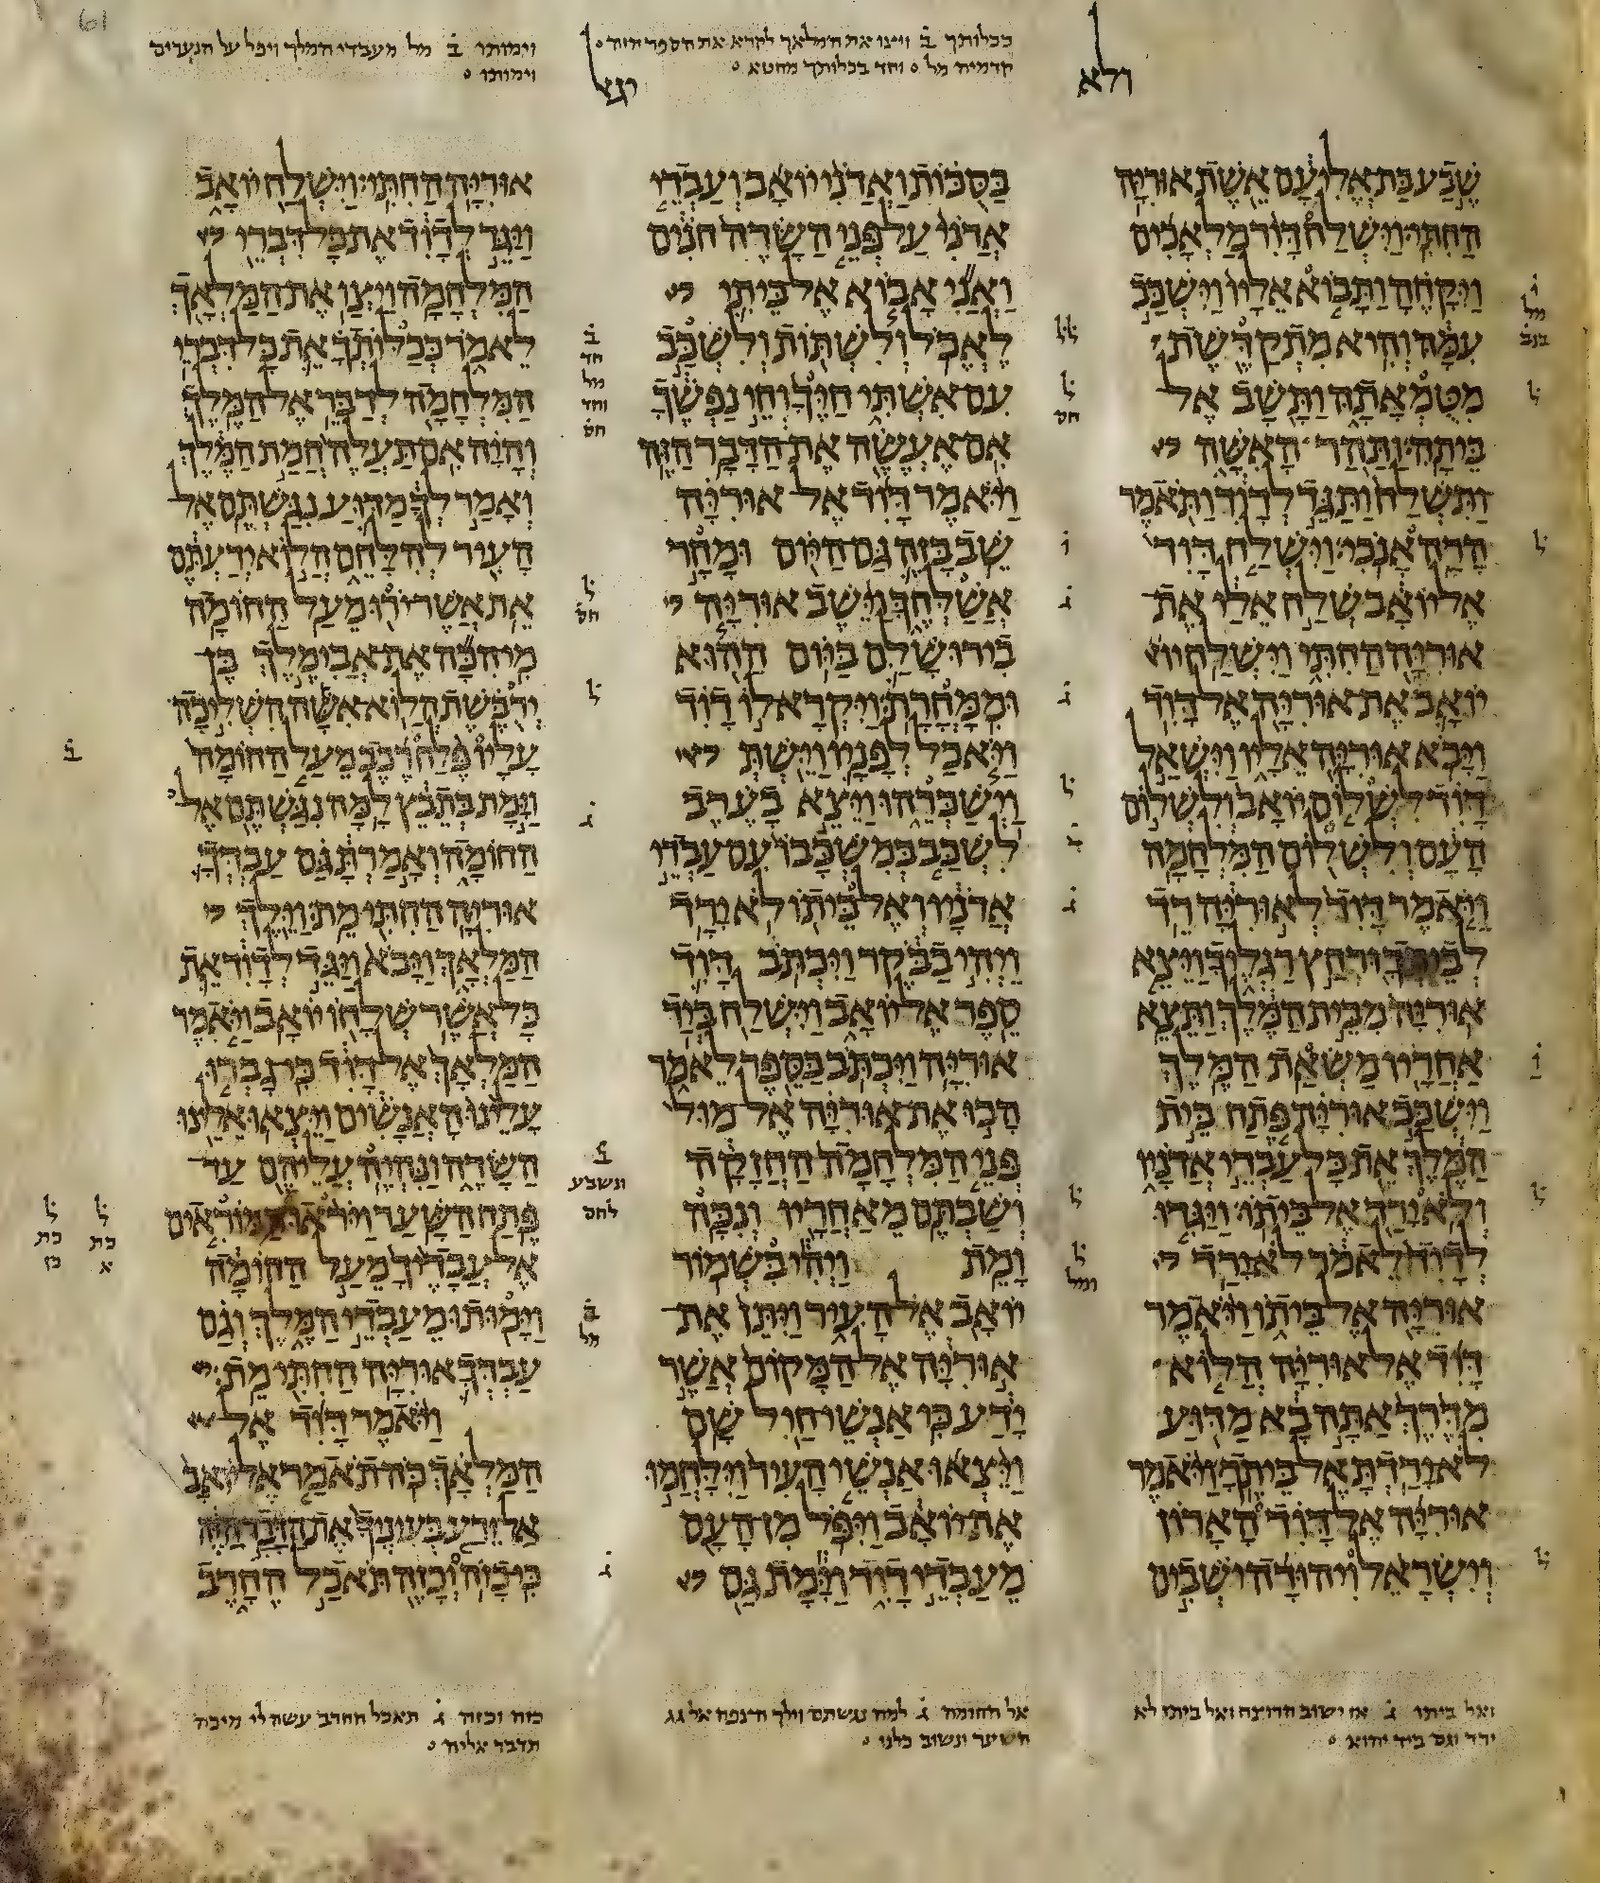 ולא
בכלותך ב ויצו את המלאך לקרא את הספר הזה
קדמיה מל וחד בכלותך מחטא
וימותו ב מל מעבדי המלך ויפל על הנערים
וימותו
שבע בת אליעם אשת אוריה
החתי וישלח דוד מלאכים
ויקחה ותבוא אליו וישכב
עמה והיא מתקדשת
מטמאתה ותשב אל
ביתה ותהר האשה
ותשלח ותגד לדוד ותאמר
הרה אנכי וישלח דוד
אל יואב שלח אלי את
אוריה החתי וישלח
יואב את אוריה אל דוד
ויבא אוריה אליו וישאל
דוד לשלום יואב ולשלום
העם ולשלום המלחמה
ויאמר דוד לאוריה רד
לביתך ורחץ רגליך ויצא
אוריה מבית המלך ותצא
אחריו משאת המלך
וישכב אוריה פתח בית
המלך את כל עבדי אדניו
ולא ירד אל ביתו ויגדו
לדוד לאמר לא ירד
אוריה אל ביתו ויאמר
דוד אל אוריה הלוא
מדרך אתה בא מדוע
לא ירדת אל ביתך ויאמר
אוריה אל דוד הארון
וישראל ויהודה ישבים
בסכות ואדני יואב ועבדי
אדני על פני השדה חנים
ואני אבוא אל ביתי
לאכל ולשתות ולשכב
עם אשתי חיך וחי נפשך
אם אעשה את הדבר הזה
ויאמר דוד אל אוריה
שב בזה גם היום ומחר
אשלחך וישב אוריה
בירושלם ביום ההוא
וממחרת ויקרא לו דוד
ויאכל לפניו וישת
וישכרהו ויצא בערב
לשכב במשכבו עם עבדי
אדניו ואל ביתו לא ירד
ויהי בבקר ויכתב דוד
ספר אל יואב וישלח ביד
אוריה ויכתב בספר לאמר
הבו את אוריה אל מול
פני המלחמה החזקה
ושבתם מאחריו ונכה
ומת ויהי בשמור
יואב אל העיר ויתן את
אוריה אל המקום אשר
ידע כי אנשי חיל שם
ויצאו אנשי העיר וילחמו
את יואב ויפל מן העם
מעבדי דוד וימת גם
אוריה החתי וישלח יואב
ויגד לדוד את כל דברי
המלחמה ויצו את המלאך
לאמר ככלותך את כל דברי
המלחמה לדבר אל המלך
והיה אם תעלה חמת המלך
ואמר לך מדוע נגשתם אל
העיר להלחם הלוא ידעתם
את אשר ירו מעל החומה
מי הכה את אבימלך בן
ירבשת הלוא אשה השליכה
עליו פלח רכב מעל החומה
וימת בתבץ למה נגשתם אל
החומה ואמרת גם עבדך
אוריה החתי מת וילך
המלאך ויבא ויגד לדוד את
כל אשר שלחו יואב ויאמר
המלאך אל דוד כי גברו
עלינו האנשים ויצאו אלינו
השדה ונהיה עליהם עד
פתח השער ויראו המוראים
אל עבדיך מעל החומה
וימותו מעבדי המלך וגם
עבדך אוריה החתי מת
ויאמר דוד אל
המלאך כה תאמר אל יואב
אל ירע בעיניך את הדבר הזה
כי כזה וכזה תאכל החרב
ואל ביתו ג אז ישוב הרוצח ואל ביתו לא
ירד וגם ביד יהוא
אל החומה ג למה נגשתם וילך הרנפה אל גג
השער ונשוב בלנו
כזה וכזה ג תאכל החרב עשה לי מיכה
תדבר אליה